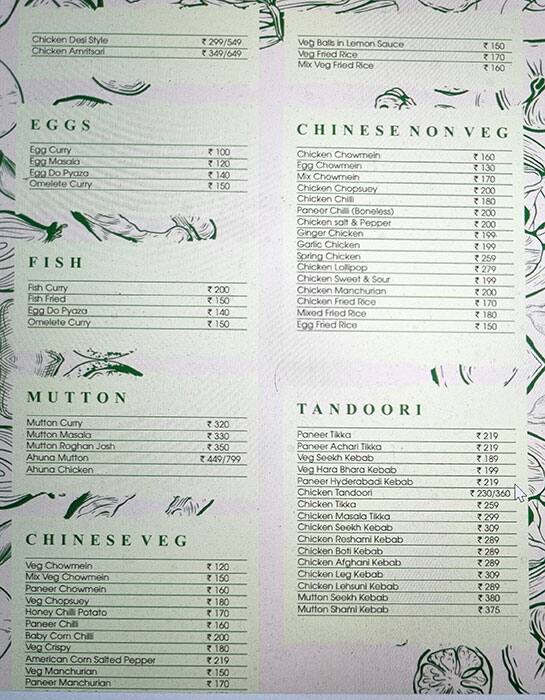 Chicken Desi Style ₹ 299/549
Chicken Amritsari ₹ 349/649
EGGS
Egg Curry ₹ 100
Egg Masala ₹ 120
Egg Do Pyaza ₹ 140
Omelete Curry ₹ 150
FISH
Fish Curry ₹ 200
Fish Fried ₹ 150
Egg Do Pyaza ₹ 140
Omelete Curry ₹ 150
MUTTON
Mutton Curry ₹ 320
Mutton Masala ₹ 330
Mutton Roghan Josh ₹ 350
Ahuna Mutton ₹ 449/799
Ahuna Chicken
CHINESE VEG
Veg Chowmein ₹ 120
Mix Veg Chowmein ₹ 150
Paneer Chowmein ₹ 160
Veg Chopsuey ₹ 180
Honey Chilli Potato ₹ 170
Paneer Chilli ₹ 160
Baby Corn Chilli ₹ 200
Veg Crispy ₹ 180
American Corn Salted Pepper ₹ 219
Veg Manchurian ₹ 150
Paneer Manchurian ₹ 170
Veg Balls in Lemon Sauce ₹ 150
Veg Fried Rice ₹ 170
Mix Veg Fried Rice ₹ 160
CHINESE NON VEG
Chicken Chowmein ₹ 160
Egg Chowmein ₹ 130
Mix Chowmein ₹ 170
Chicken Chopsuey ₹ 200
Chicken Chilli ₹ 180
Paneer Chilli (Boneless) ₹ 200
Chicken salt & Pepper ₹ 200
Ginger Chicken ₹ 199
Garlic Chicken ₹ 199
Spring Chicken ₹ 259
Chicken Lollipop ₹ 279
Chicken Sweet & Sour ₹ 199
Chicken Manchurian ₹ 200
Chicken Fried Rice ₹ 170
Mixed Fried Rice ₹ 180
Egg Fried Rice ₹ 150
TANDOORI
Paneer Tikka ₹ 219
Paneer Achari Tikka ₹ 219
Veg Seekh Kebab ₹ 189
Veg Hara Bhara Kebab ₹ 199
Paneer Hyderabadi Kebab ₹ 219
Chicken Tandoori ₹ 230/360
Chicken Tikka ₹ 259
Chicken Masala Tikka ₹ 299
Chicken Seekh Kebab ₹ 309
Chicken Reshami Kebab ₹ 289
Chicken Boti Kebab ₹ 289
Chicken Afghani Kebab ₹ 289
Chicken Leg Kebab ₹ 309
Chicken Lehsuni Kebab ₹ 289
Mutton Seekh Kebab ₹ 380
Mutton Shami Kebab ₹ 375